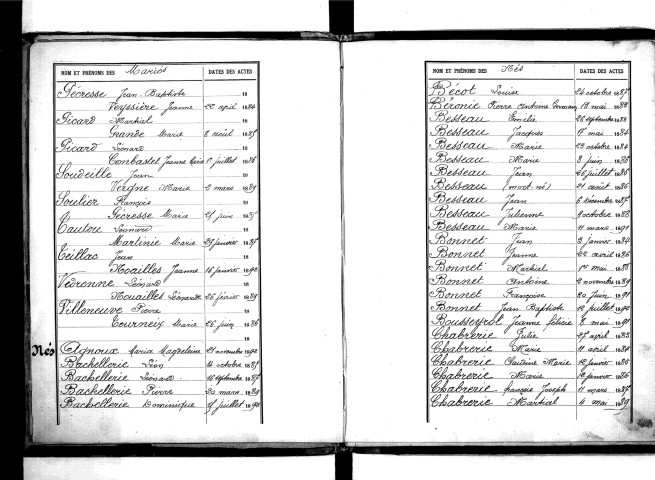 NOM ET PRÉNOMS DES Mariés DATES DES ACTES
Pécresse Jean Baptiste 18
Veyssière Jeanne 22 april 1884
Picard Martial 18
Grande Marie 8 août 1885
Picard Léonard 18
Combastet Jeanne Marie juillet 1886
Soudeille Jean 18
Vergne Marie 2 mars 1889
Soulier François 18
Pécresse Maria juin 18
Tautou Léonard 18
Martinie Marie 29 janvier 1885
Teillac Jean 18
Noailles Jeanne 16 janvier 1892
Vedrenne Léonard 18
Nouailles Léonarde 26 février 1889
Villeneuve Pierre 18
Tourneix Marie 26 juin 1886
18
Nés
Agnoux Maria Magdeleine 21 novembre 1892
Bachellerie Léon 4 octobre 1885
Bachellerie Léonard 16 septembre 1887
Bachellerie Pierre 20 mars 1889
Bachellerie Dominique juillet 1892
NOM ET PRÉNOMS DES Nés DATES DES ACTES
Bécot Louise 24 octobre 1887
Béronie Pierre Antoine 18 mai 1888
Besseau Emilie 26 septembre 1883
Besseau Jacques 17 mai 1884
Besseau Marie 23 octobre 1884
Besseau Marie 8 juin 1886
Besseau Jean 26 juillet 1886
Besseau (mort-né) 21 août 1886
Besseau Jean 6 décembre 1887
Besseau Julienne octobre 1888
Besseau Marie 11 mars 1891
Bonnet Jean 3 janvier 1884
Bonnet Jeanne 22 avril 1886
Bonnet Martial 14 mai 1888
Bonnet Antoine 2 novembre 1889
Bonnet Françoise 20 juin 1891
Bonnet Jean Baptiste 12 juillet 1892
Bousseyrol Jeanne Léticie 8 mai 1891
Chabrerie Julie 27 april 1883
Chabrerie Marie 11 april 1884
Chabrerie Claudine Marie 12 janvier 1886
Chabrerie Marie 12 janvier 1886
Chabrerie François Joseph 11 mars 1887
Chabrerie Martial 4 mai 1889